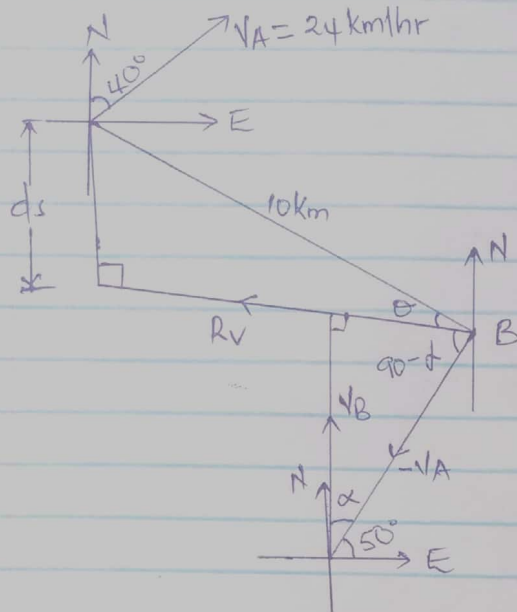 N
VA = 24km/hr
40°
E
ds
10km
N
θ
B
RV
90-α
VB
-VA
N
α
50°
E